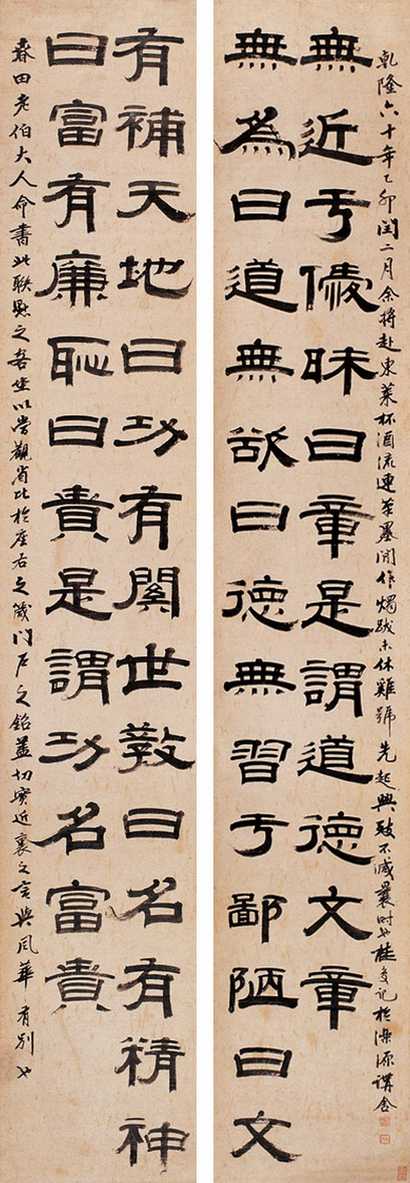 有補天地曰功有關世敎曰名有精神
曰富有廉恥曰貴是謂功名富貴
春田老伯大人命書此聯懸之客坐以當觀省比於座右之箴門戶之銘蓋切實近裏之言與風華有別也
無為曰道無欲曰德無習于鄙陋曰文
無近于僾昧曰章是謂道德文章
乾隆六十年乙卯閏二月余將赴東萊杯酒流連筆墨閒作燭跋未休雞號先起興致不減曩時也桂馥記於濼源講舍